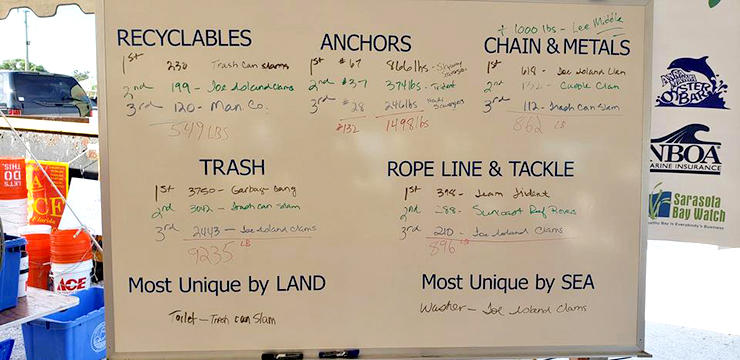 + 1000 lbs - Lee Middle
RECYCLABLES
1st 230 Trash can slams
2nd 199 - Joe Island clams
3rd 120 - Man. Co.
549 LBS
ANCHORS
1st #67 866 lbs -
2nd #37 374 lbs - Trident
3rd #28 246 lbs
#132 1498 lbs
CHAIN & METALS
1st 618 - Joe Island Clam
2nd 132 - Clam
3rd 112 - Trash can Slam
862 LB
TRASH
1st 3750 - Garbage Gang
2nd 3042 - Trash can Slam
3rd 2443 - Joe Island Clams
9235 LB
ROPE LINE & TACKLE
1st 398 - Team Trident
2nd 288 - Suncoast Reef Rovers
3rd 210 - Joe Island Clams
896 LB
Most Unique by LAND
Toilet - Trash can Slam
Most Unique by SEA
Washer - Joe Island Clams
ANNA MARIA
OYSTER BAR
NBOA
MARINE INSURANCE
Sarasota
Bay Watch
Healthy Bay is Everybody's Business
LET'S
DO
THIS.
ACE